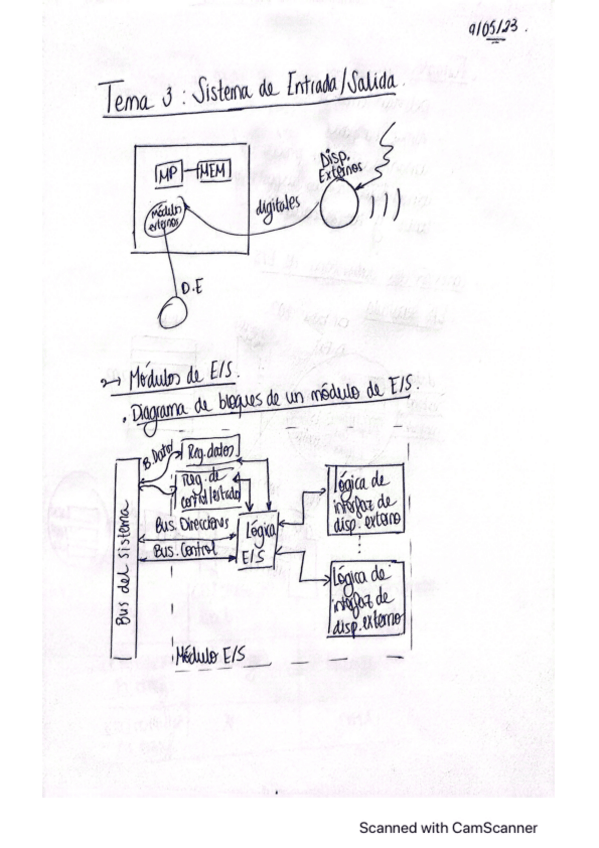 9/05/23.
Tema 3: Sistema de Entrada/Salida.
MP
MEM
Disp.
Externos
digitales
módulos
externos
D.E
2→ Módulos de E/S.
. Diagrama de bloques de un módulo de E/S.
B.Datos
Reg.datos
Reg. de
control/estado
Bus. Direcciones
Bus. Control
Lógica
E/S
Bus del sistema
Lógica de
interfaz de
disp. externo
Lógica de
interfaz de
disp. externo
Módulo E/S
Scanned with CamScanner